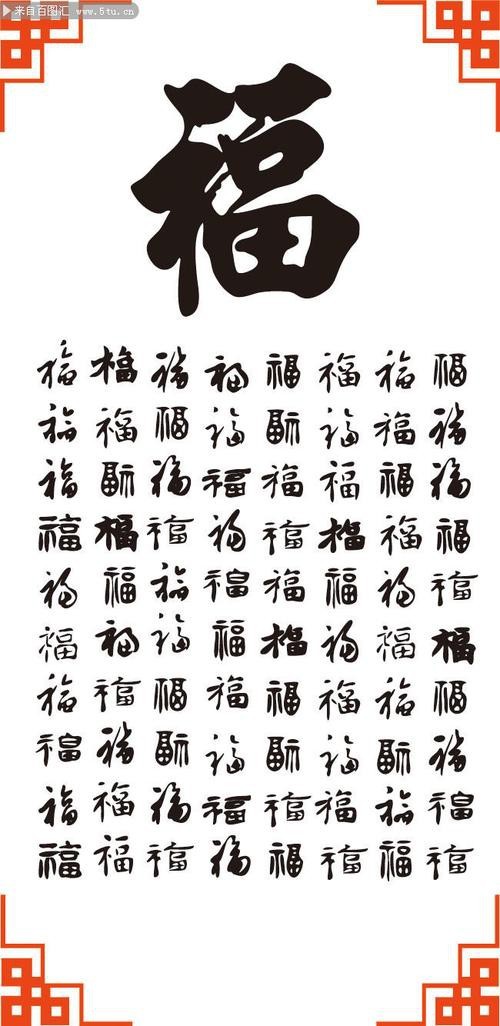 来自百图汇 www.5tu.cn
福
福福福福福福福福
福福福福福福福福
福福福福福福福福
福福福福福福福福
福福福福福福福福
福福福福福福福福
福福福福福福福福
福福福福福福福福
福福福福福福福福
福福福福福福福福